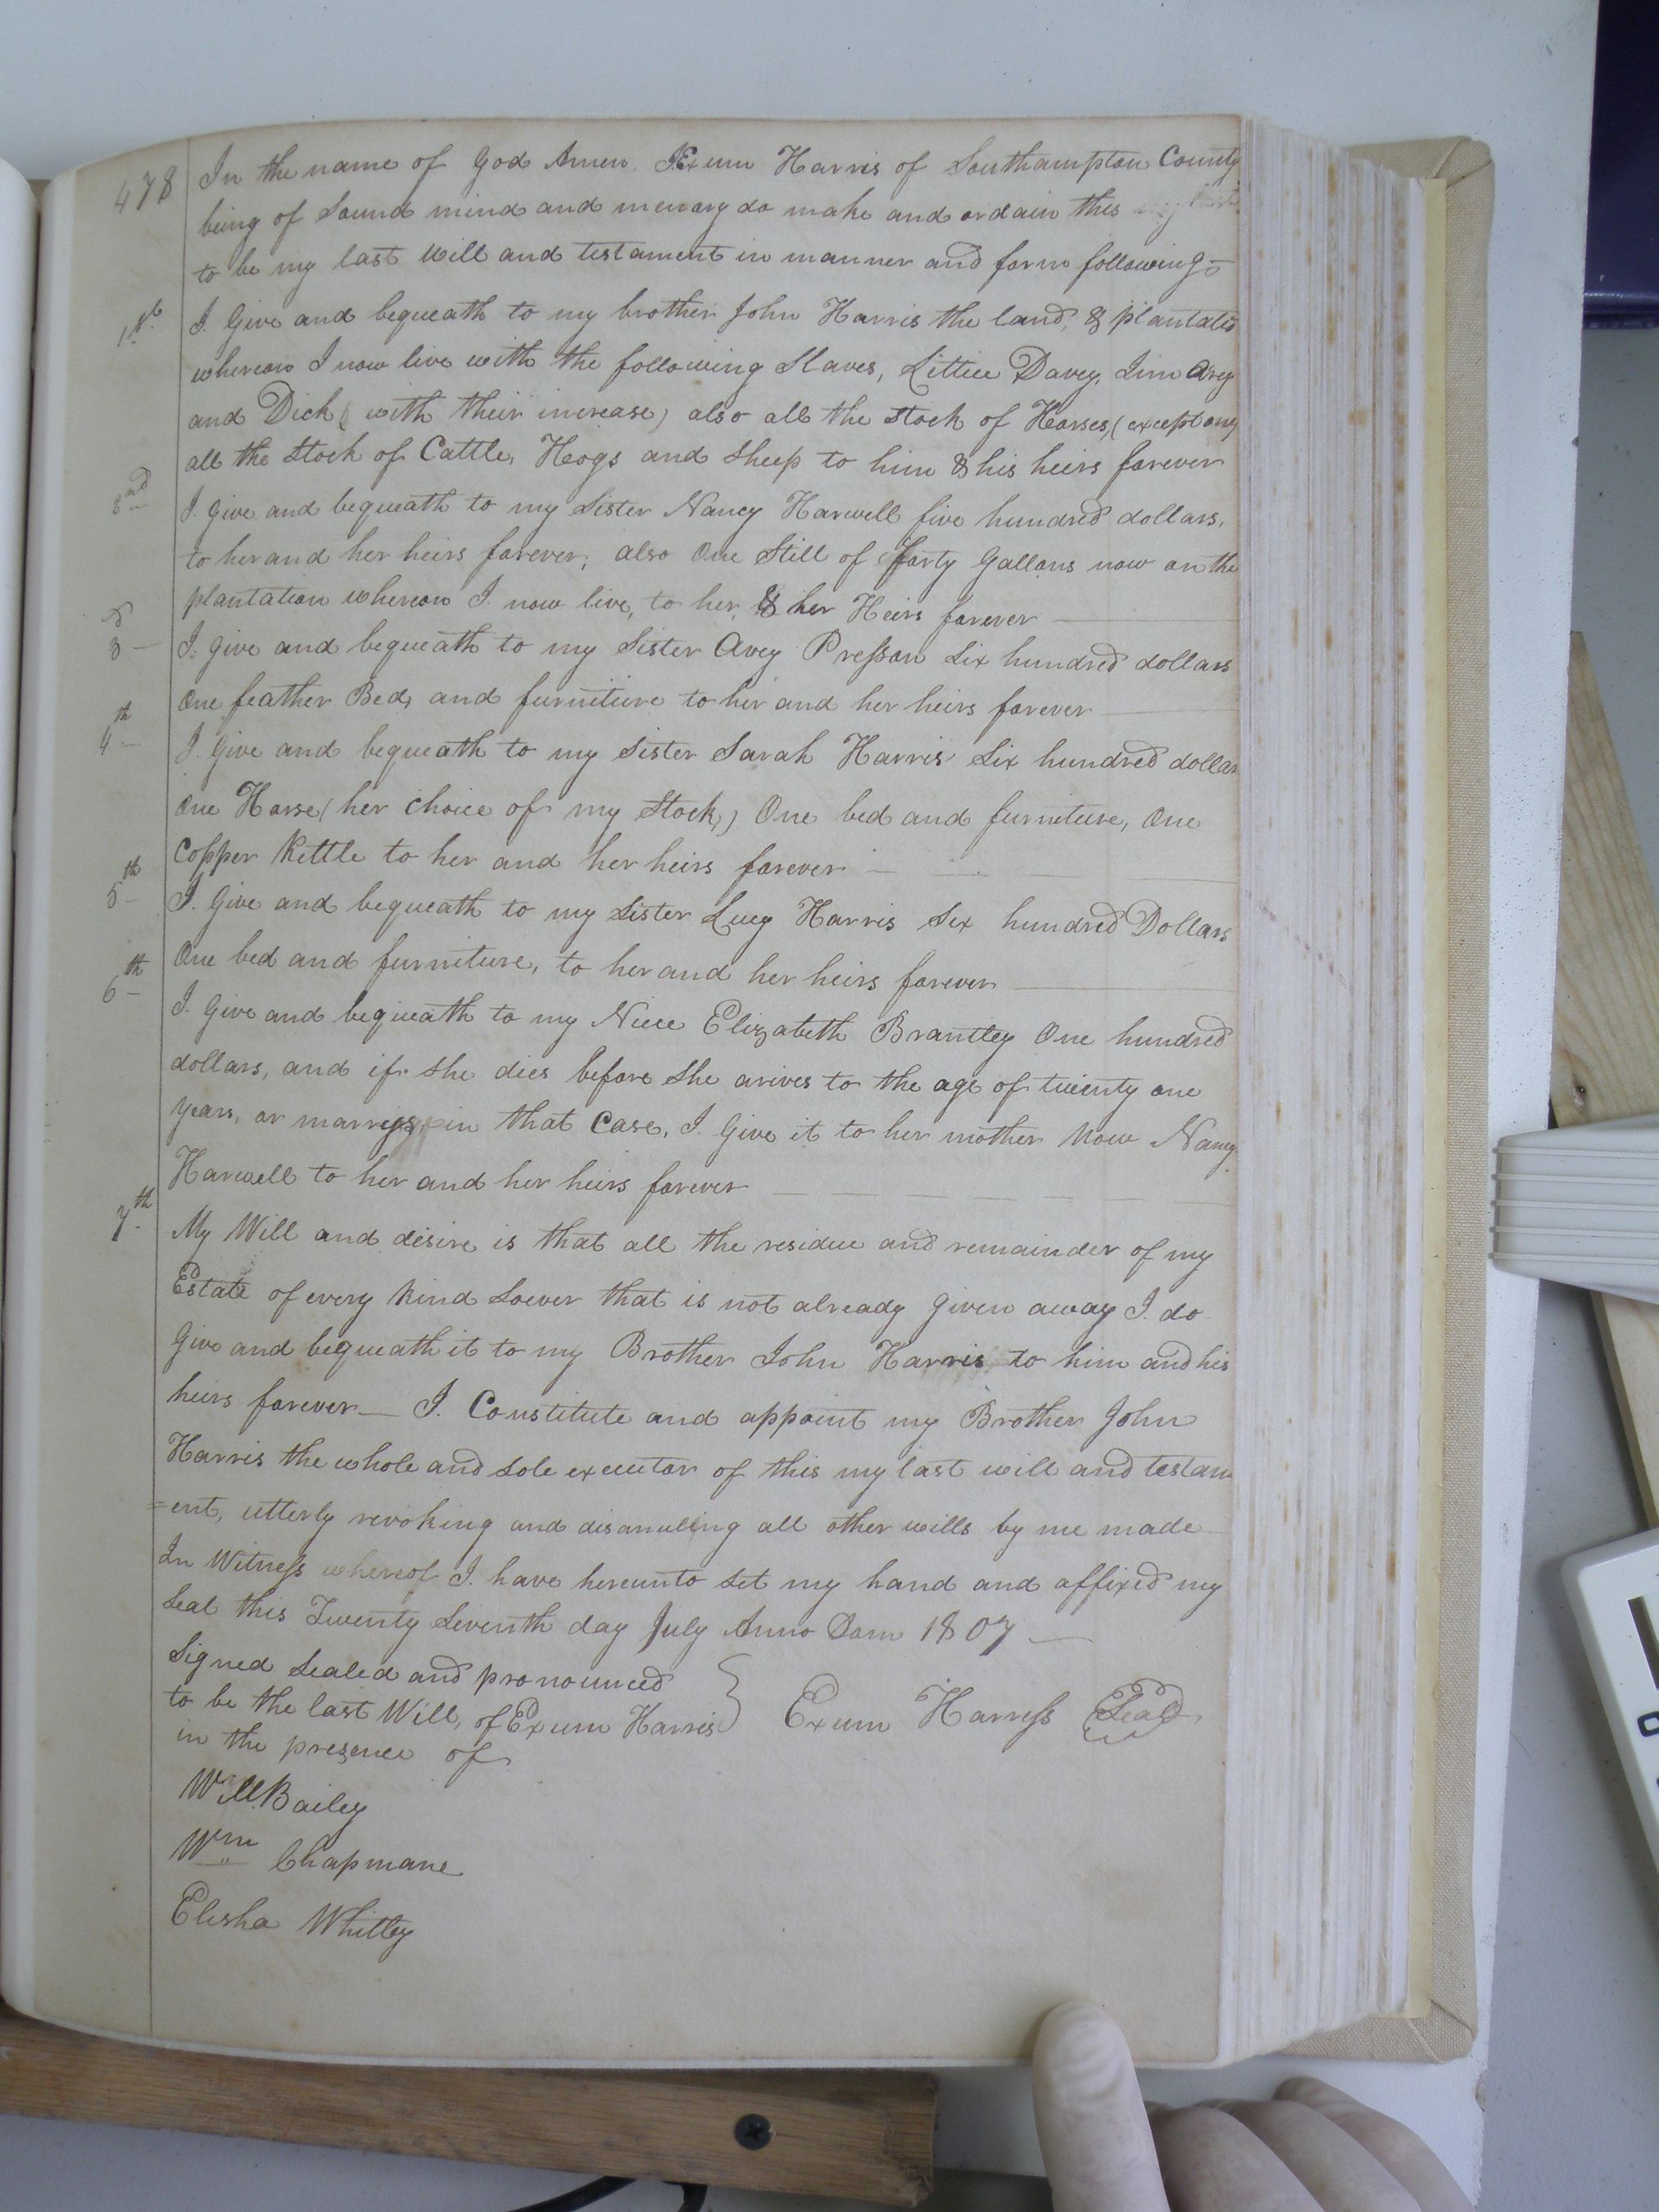 478
In the name of God Amen. I Exum Harris of Southampton County
being of Sound mind and memory do make and ordain this
to be my last Will and testament in manner and form following
1st I. Give and bequeath to my brother John Harris the land, & plantatio
whereon I now live with the following Slaves, Littice Davey, Jim Avey
and Dick (with their increase) also all the stock of Horses, (except one)
all the Stock of Cattle, Hogs and Sheep to him & his heirs forever
2nd I. Give and bequeath to my Sister Nancy Harwell five hundred dollars,
to her and her heirs forever, also One Still of forty Gallons now on the
plantation whereon I. now live, to her, & her Heirs forever
3 I. Give and bequeath to my Sister Avey Presson Six hundred dollars
One feather Bed, and furniture to her and her heirs forever
4th I. Give and bequeath to my Sister Sarah Harris Six hundred dollar
One Horse (her choice of my Stock,) One bed and furniture, One
Copper Kettle to her and her heirs forever
5th I. Give and bequeath to my Sister Lucy Harris Six hundred Dollars
One bed and furniture, to her and her heirs forever
6th I. Give and bequeath to my Niece Elizabeth Brantley One hundred
dollars, and if she dies before she arives to the age of twenty one
years, or marrys, in that Case, I. Give it to her mother Now Nancy
Harwell to her and her heirs forever
7th My Will and desire is that all the residue and remainder of my
Estate of every Kind Soever that is not already Given away I. do
Give and bequeath it to my Brother John Harris to him and his
heirs forever— I. Constitute and appoint my Brother John
Harris the whole and Sole executor of this my last will and testam
=ent, utterly revoking and disanuling all other wills by me made
In Witness whereof I. have hereunto Set my hand and affixed my
Seal this Twenty Seventh day July Anno Dom 1807
Signed Sealed and pronounced
to be the last Will, of Exum Harris } Exum Harress Seal
in the presence of
Will. Bailey
Wm Chapmane
Elisha Whitley